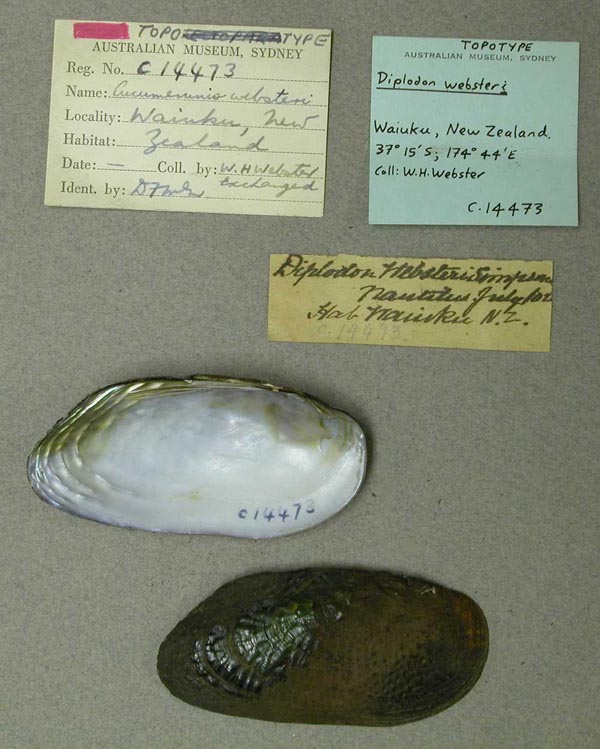 TOPOTYPE
AUSTRALIAN MUSEUM, SYDNEY
Reg. No. C14473
Name: Cucumerunio websteri
Locality: Waiuku, New
Habitat: Zealand
Date: — Coll. by: W.H. Webster
Ident. by: exchanged
TOPOTYPE
AUSTRALIAN MUSEUM, SYDNEY
Diplodon websteri
Waiuku, New Zealand.
37° 15' S; 174° 44' E
Coll: W.H. Webster
C.14473
Diplodon Websteri Simpson
Nautilus July
Hab Waiuku N.Z.
C.14473.
C14473